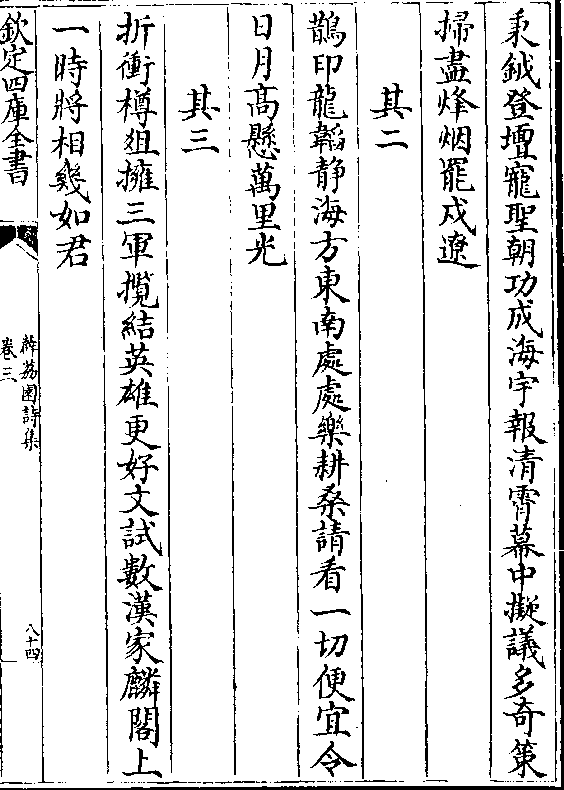 秉鉞登壇寵聖朝功成海宇報清霄幕中擬議多奇策
掃盡烽烟罷戍遼
其二
鵲印龍韜静海方東南處處樂耕桑請看一切便宜令
日月髙懸萬里光
其三
折衝樽爼擁三軍攬結英雄更好文試數漢家麟閣上
一時將相幾如君
欽定四庫全書
薜荔園詩集
卷三
八十四